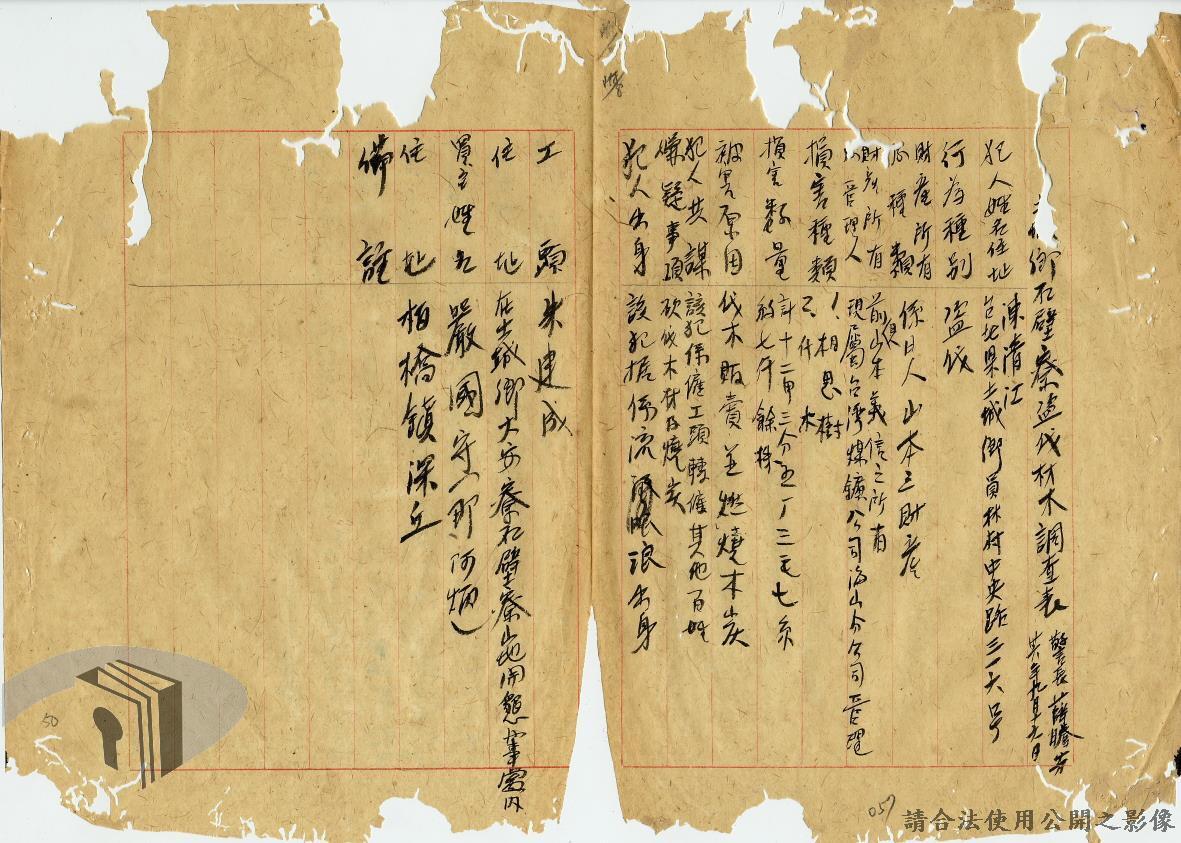 鄉石壁寮盜伐材木調查表
警長薛勝芳
共年九月五日
犯人姓名住址 陳濟江
台北縣土城鄉員林村中央路三一六号
行為種別 盜伐
財產所有種類 係日人山本三財產
財產所有管理人 前日人山本義信之所有
現屬台湾煤鑛公司海山分公司管理
損害種類 1.相思樹
2.什木
損害數量 計十二甲三分五厘三毛七糸
約七千餘株
被害原因 伐木販賣並燃燒木炭
犯人共謀嫌疑事項 該犯係僱工頭轉僱其他百姓
砍伐木材及燒炭
犯人出身 該犯據係流浪出身
工頭 朱建成
住址 在土城鄉大安寮石壁寮山地開墾事窩內
買主姓名 嚴國守(即阿炳)
住址 栢橋鎮深丘
備註
50
057
請合法使用公開之影像